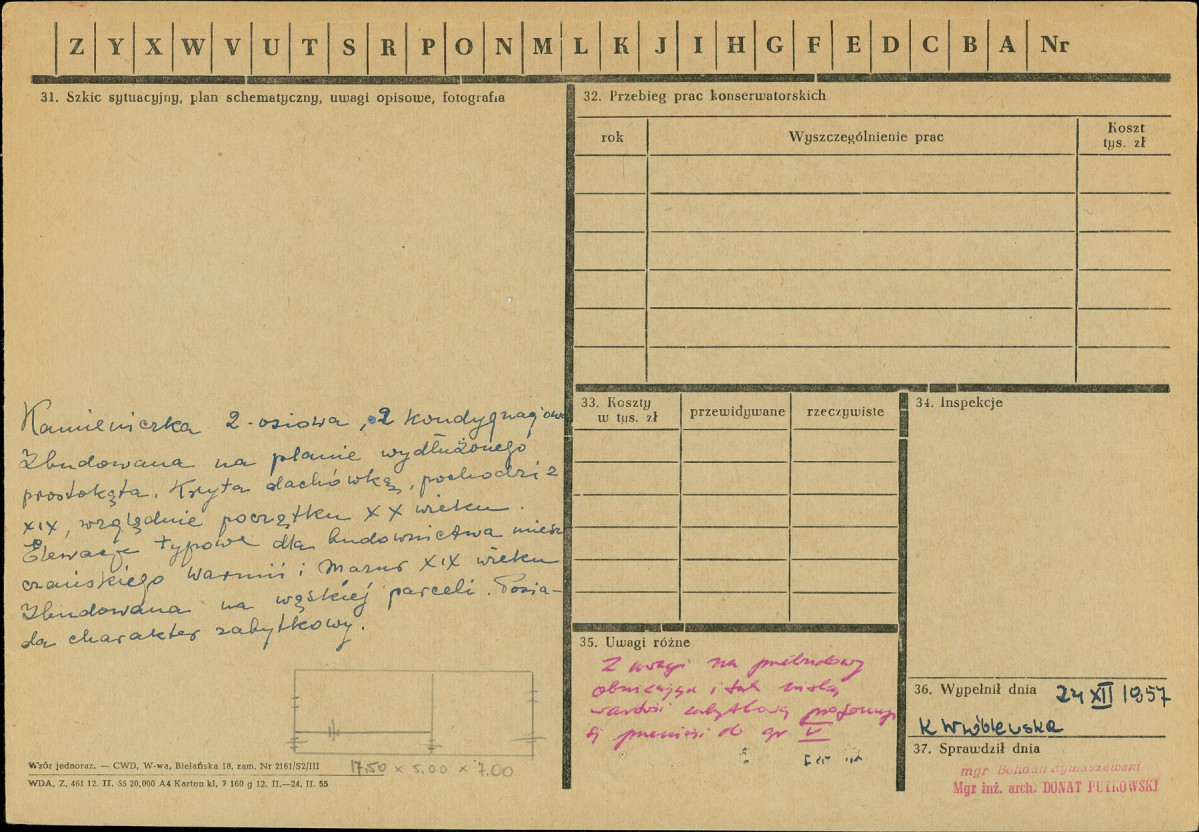 Z Y X W V U T S R P O N M L K J I H G F E D C B A Nr
31. Szkic sytuacyjny, plan schematyczny, uwagi opisowe, fotografia
Kamieniczka 2-osiowa, 2 kondygnacjowa
Zbudowana na planie wydłużonego
prostokąta. Kryta dachówką, pochodzi z
XIX, względnie początku XX wieku.
Elewacje typowe dla budownictwa miesz
czańskiego Warmii i Mazur XIX wieku
Zbudowana na wąskiej parceli. Posia-
da charakter zabytkowy.
17.50 x 5.00 x 7.00
Wzór jednoraz. — CWD, W-wa, Bielańska 18, zam. Nr 2161/52/III
WDA, Z, 461 12. II. 55 20,000 A4 Karton kl. 7 160 g 12. II.—24. II. 55
32. Przebieg prac konserwatorskich
rok
Wyszczególnienie prac
Koszt
tys. zł
33. Koszty
w tys. zł
przewidywane
rzeczywiste
34. Inspekcje
35. Uwagi różne
Z uwagi na przebudowy
obniżające i tak niską
wartość zabytkową
się przenieść do gr V
36. Wypełnił dnia 24 XII 1957
K Wróblewska
37. Sprawdził dnia
mgr Bohdan Rymaszewski
Mgr inż. arch. DONAT PUTKOWSKI